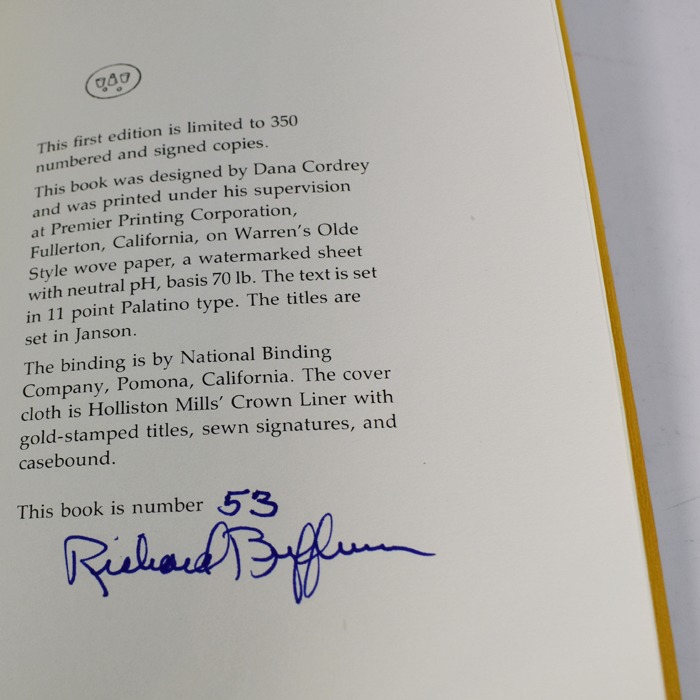 This first edition is limited to 350
numbered and signed copies.
This book was designed by Dana Cordrey
and was printed under his supervision
at Premier Printing Corporation,
Fullerton, California, on Warren's Olde
Style wove paper, a watermarked sheet
with neutral pH, basis 70 lb. The text is set
in 11 point Palatino type. The titles are
set in Janson.
The binding is by National Binding
Company, Pomona, California. The cover
cloth is Holliston Mills' Crown Liner with
gold-stamped titles, sewn signatures, and
casebound.
This book is number 53
Richard Buffum